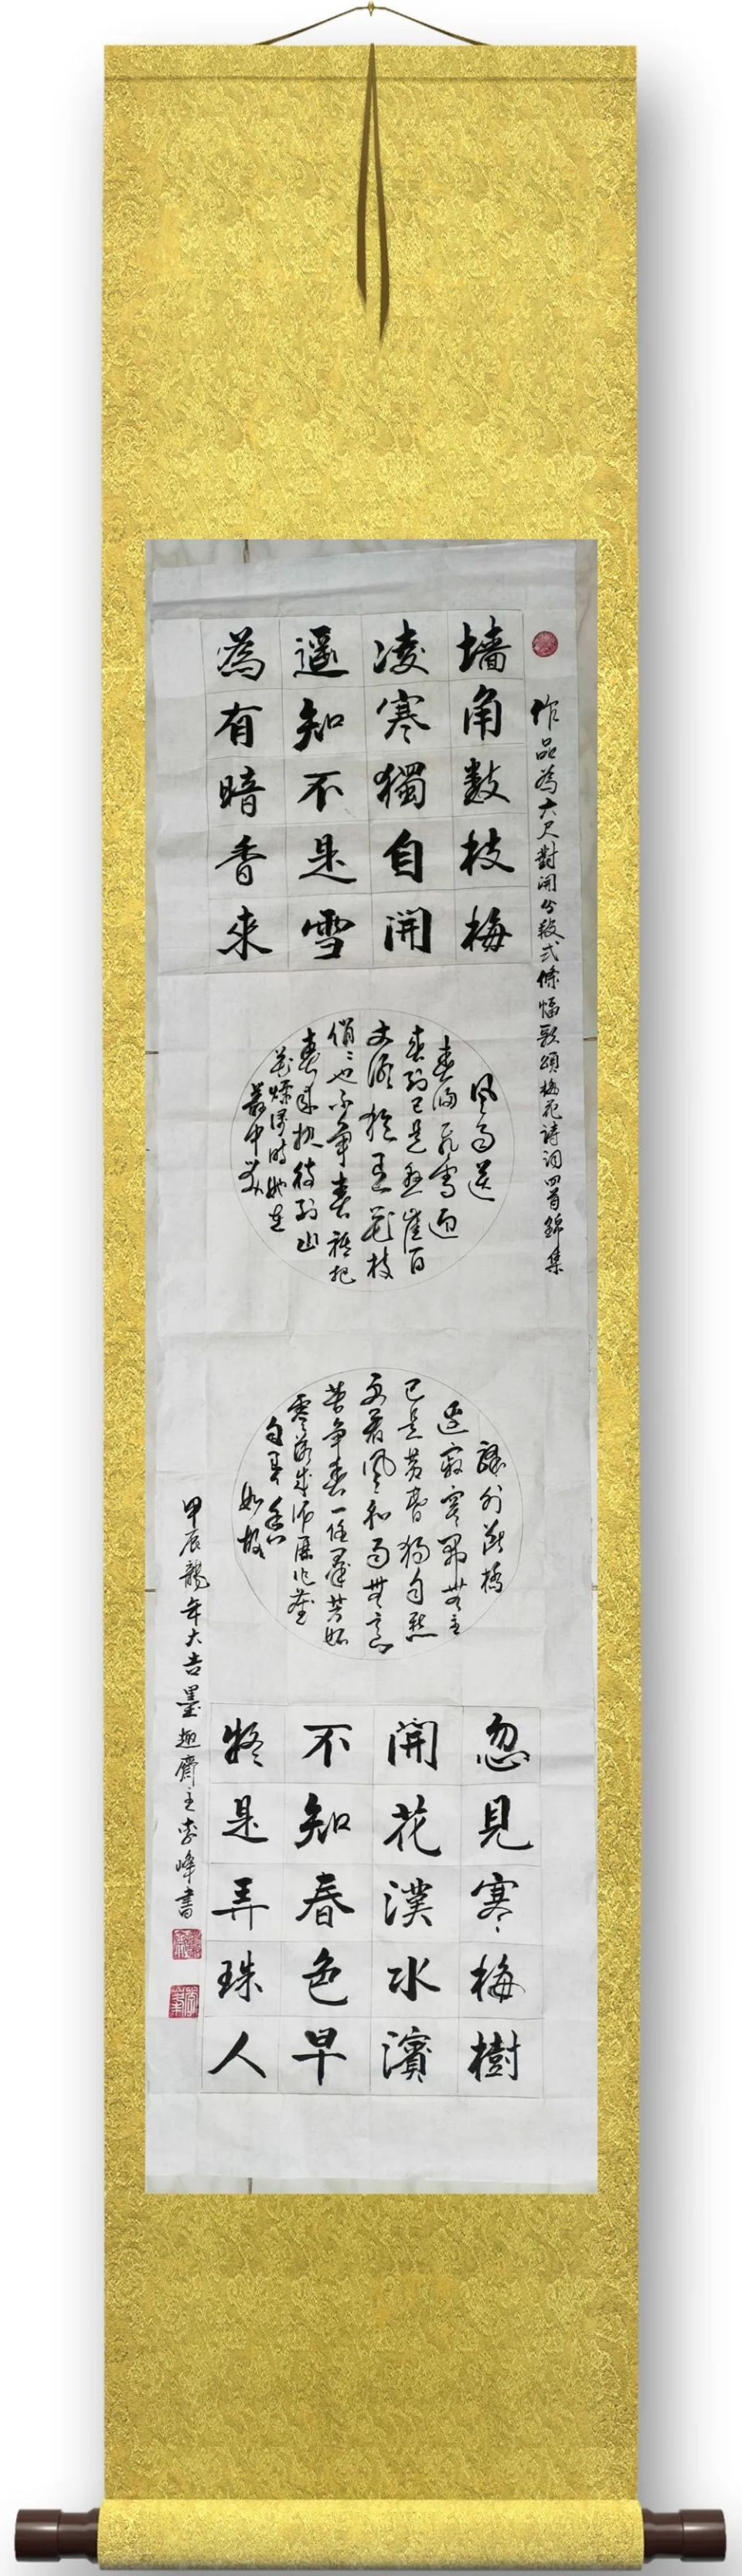 作品為六尺對開分段式條幅歌頌梅花詩詞四首錦集
墙角數枝梅
凌寒獨自開
遥知不是雪
為有暗香來
風雨送
春歸飛雪迎
春到已是懸崖百
丈冰猶有花枝
俏俏也不争春祗把
春來報待到山
花爛漫時她在
叢中笑
驛外斷橋
邊寂寞開無主
已是黄昏獨自愁
更著風和雨無意
苦争春一任羣芳妒
零落成泥碾作塵
只有香
如故
忽見寒梅樹
開花漢水濱
不知春色早
疑是弄珠人
甲辰龍年大吉墨趣齋主李峰書